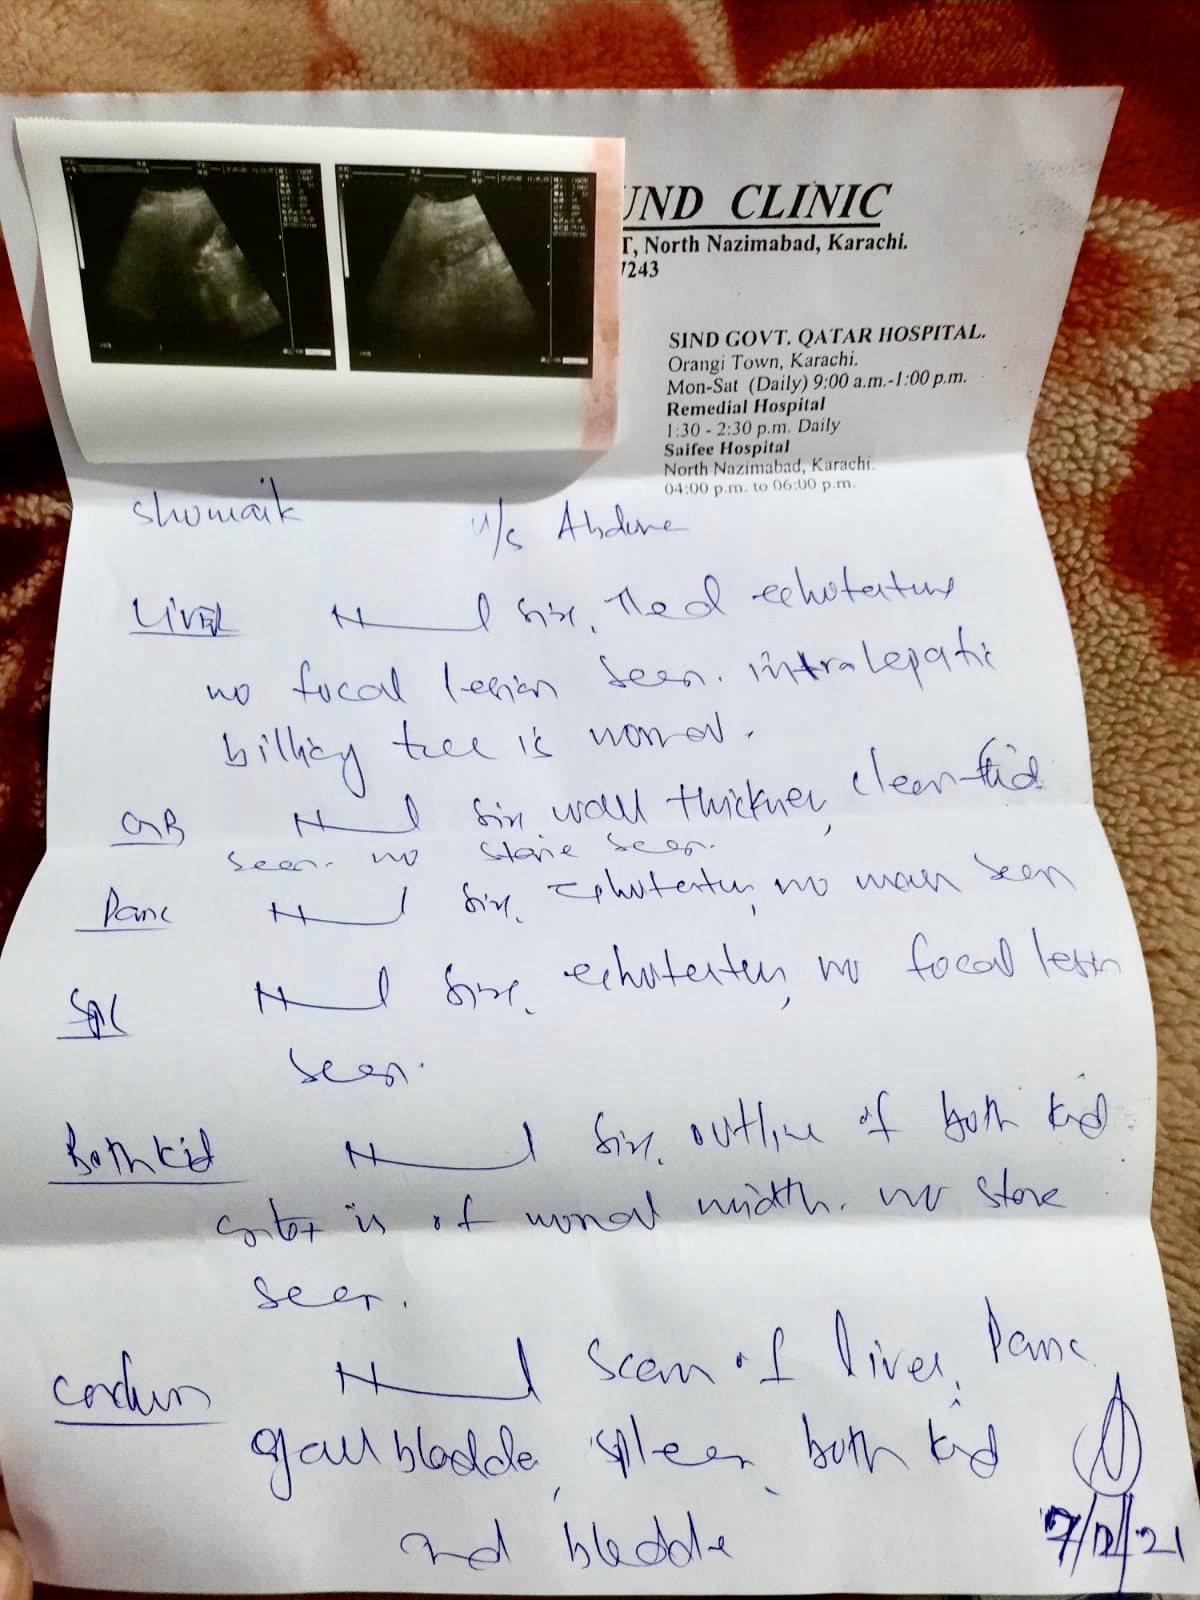 UND CLINIC
T, North Nazimabad, Karachi.
7243
SIND GOVT. QATAR HOSPITAL.
Orangi Town, Karachi.
Mon-Sat (Daily) 9:00 a.m.-1:00 p.m.
Remedial Hospital
1:30 - 2:30 p.m. Daily
Saifee Hospital
North Nazimabad, Karachi.
04:00 p.m. to 06:00 p.m.
Shumaik u/s Abdome
LIVER N___l size, echotexture
no focal lesion seen. intrahepatic
billiary tree is normal.
GB N___l size wall thicknes, clear fluid
seen. no stone seen.
Panc N___l size, echotexture, no mass seen
Spl N___l size, echotexture, no focal lesion
seen.
Both kid N___l size, outline of both kid
cortex is of normal width. no stone
seen.
N___l Scan of liver, Panc
gall bladder, spleen, both kid
and bladder
7/12/21